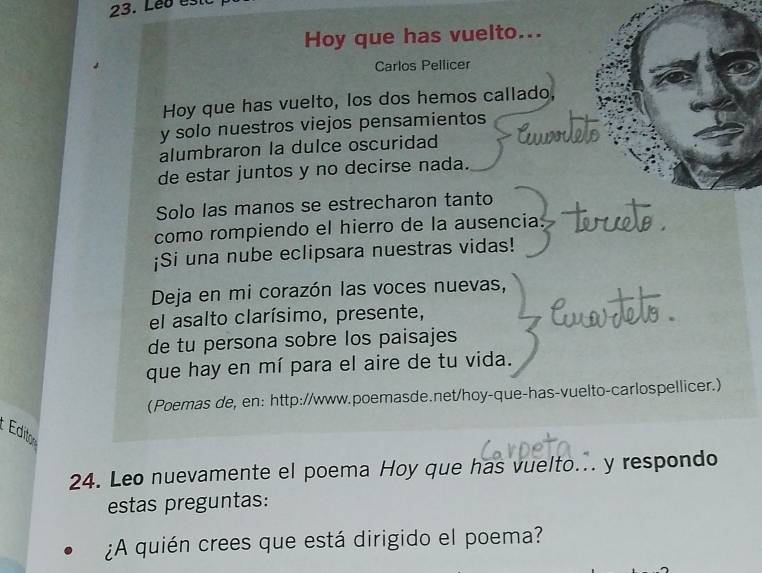 23. Leo
Hoy que has vuelto...
Carlos Pellicer
Hoy que has vuelto, los dos hemos callado,
y solo nuestros viejos pensamientos
alumbraron la dulce oscuridad
de estar juntos y no decirse nada.
Cuarteto
Solo las manos se estrecharon tanto
como rompiendo el hierro de la ausencia.
¡Si una nube eclipsara nuestras vidas!
terceto.
Deja en mi corazón las voces nuevas,
el asalto clarísimo, presente,
de tu persona sobre los paisajes
que hay en mí para el aire de tu vida.
Cuarteto.
(Poemas de, en: http://www.poemasde.net/hoy-que-has-vuelto-carlospellicer.)
Carpeta
24. Leo nuevamente el poema Hoy que has vuelto... y respondo
estas preguntas:
• ¿A quién crees que está dirigido el poema?